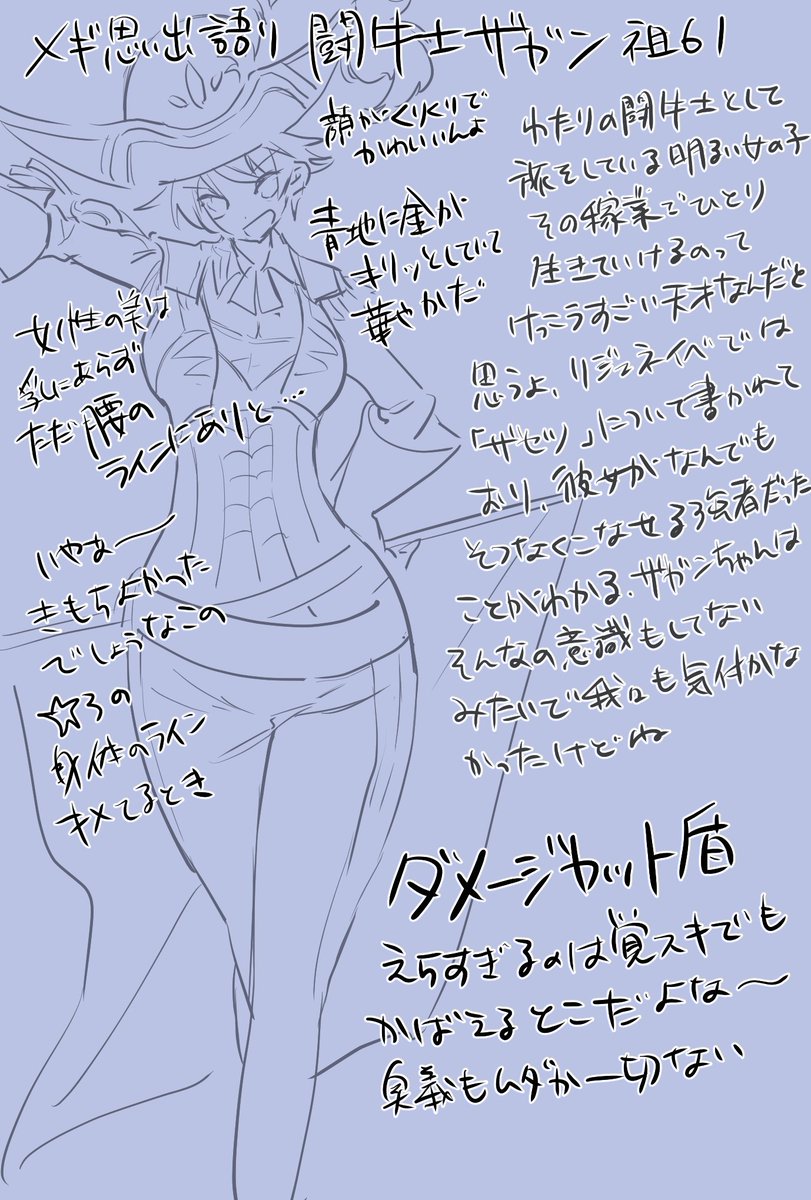 メギ思い出語り 闘牛士ザガン 祖61
顔がくりくりで
かわいいんよ
青地に金が
キリッとしていて
華やかだ
わたりの闘牛士として
旅をしている明るい女の子
その稼業でひとり
生きていけるのって
けっこうすごい天才なんだと
思うよ、リジェネイベでは
「ザセツ」について書かれて
おり、彼女がなんでも
そつなくこなせる強者だった
ことがわかる、ザガンちゃんは
そんなの意識もしてない
みたいで我々も気付かな
かったけどね
女性の美は
乳にあらず
ただ腰の
ラインにありと…
いやぁ〜
きもちよかった
でしょうなこの
☆3の
身体のライン
キメてるとき
ダメージカット盾
えらすぎるのは覚スキでも
かばえるとこだよな〜
奥義もムダが一切ない